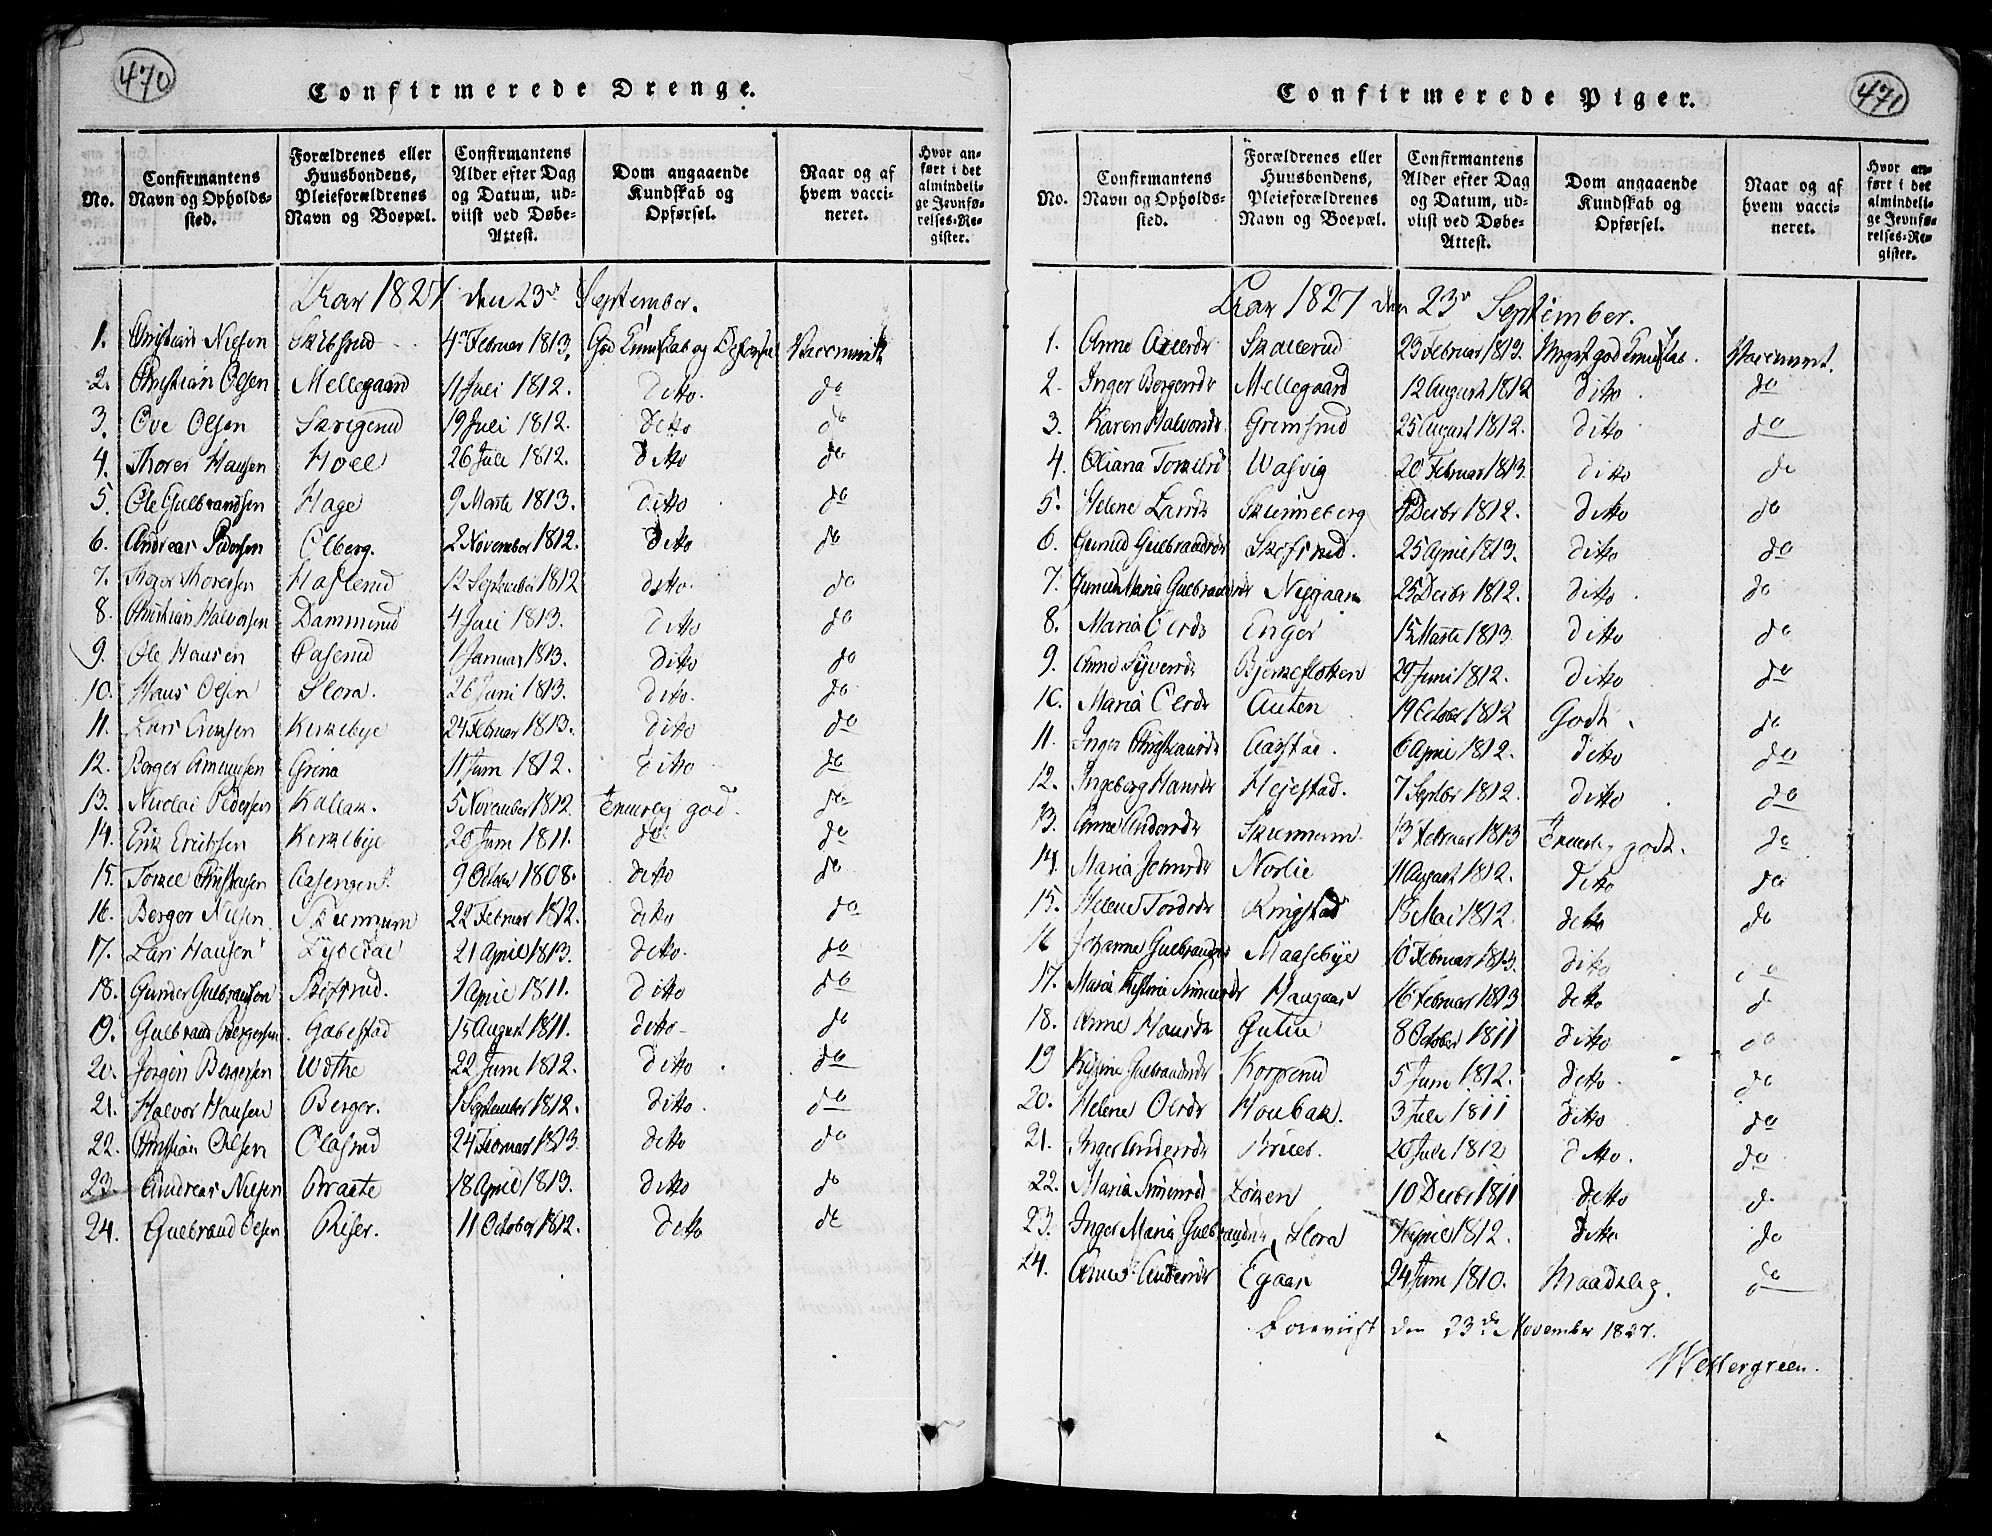 470
Confirmerede Drenge.
No. | Confirmantens Navn og Opholds-sted. | Forældrenes eller Huusbondens, Pleieforældrenes Navn og Boepæl. | Confirmantens Alder efter Dag og Datum, ud-viist ved Døbe-Attest. | Dom angaaende Kundskab og Opførsel. | Naar og af hvem vacci-neret. | Hvor an-ført i det almindeli-ge Jevnfø-relses-Re-gister.
Aar 1827 den 23de September.
1. Christian Nielsen 4de Februar 1813. God Kundskab og Opførsel Vaccineret
2. Christian Olsen Mellegaard 11 Juli 1812. Ditto. do
3. Ove Olsen 19 Juli 1812. Ditto do
4. Thorer Hansen Hoel 26 Juli 1812. Ditto do
5. Ole Gulbrandsen Hage 9 Marts 1813. Ditto do
6. Andreas Pedersen Olberg. 2 November 1812. Ditto do
7. Thorer Thoresen Haslerud 12 September 1812 ditto. do
8. Christian Halvorsen Dammerud 4 Juli 1813. Ditto do
9. Ole Hansen Paserud 1 Januar 1813. Ditto do
10. Hans Olsen Flora. 26 Juni 1813. Ditto. do
11. Lars Kirkebye 24 Februar 1813. Ditto do
12. Berger Amundsen Grina 11 Juni 1812. Ditto do
13. Nicolai Pedersen Kallak. 5 November 1812 Temmelig god. do
14. Erik Erichsen Kirkebye 20 Juni 1811. do. do
15. Torkel Christiansen Aasengen 9 October 1808. ditto do
16. Berger Nielsen Skinnum 22 Februar 1812. ditto do
17. Lars Hansen 21 April 1813. ditto. do
18. Gunder Gulbrandsen Skefsrud. 1 April 1811. Ditto do
19. Gulbrand Bergersen Gabestad 15 August 1811. ditto do
20. Jørgen Bergersen Wøthe 22 Juni 1812. Ditto do
21. Halvor Hansen Berger. 1 September 1812. ditto. do
22. Christian Olsen Olasrud 24 Februar 1813. ditto do
23. Andreas Nielsen Braate 18 April 1813. ditto do
24. Gulbrand Olsen Riser. 11 October 1812. ditto do
471
Confirmerede Piger.
No. | Confirmantens Navn og Opholds-sted. | Forældrenes eller Huusbondens, Pleieforældrenes Navn og Boepæl. | Confirmantens Alder efter Dag og Datum, ud-viist ved Døbe-Attest. | Dom angaaende Kundskab og Opførsel. | Naar og af hvem vacci-neret. | Hvor an-ført i det almindeli-ge Jevnfø-relses-Re-gister.
Aar 1827 den 23de September.
1. Anne Skollerud 23 Februar 1813. Meget god Kundskab. Vaccineret.
2. Inger Bergersdr Mellegaard 12 August 1812 ditto do
3. Karen Halvorsdr Grimsrud 25 August 1812. ditto do
4. Oliana Torkelsd Wasvig 20 Februar 1813. ditto do
5. Helene Larsdr Skinneberg Decbr 1812. ditto do
6. Gunild Gulbrandsdr Skefsrud. 25 April 1813. ditto do
7. Gunild Maria Gulbrandsdr Nygaard 25 Decbr 1812. ditto do
8. Maria Olsdr Enger 15 Marts 1813 ditto do
9. Anne Syversdr Bjerkefloten 29 Juni 1812. ditto do
10. Maria Olsdr Auten 19 October 1812 Godt. do
11. Inger Christiansdr Aarstad. 6 April 1812. ditto do
12. Ingeberg Hansdr Hejestad. 7 Septbr 1812. ditto do
13. Anne Andersdr Skinnum. 13 Februar 1813 Temmelig godt. do
14. Maria Jensdr Norlie 11 August 1812. ditto do
15. Helene Tordsdr Ringstad 18 Mai 1812. ditto do
16 Johanne Gulbrandsdr Maasebye 10 Februar 1813. ditto do
17. Maria Kristina Simensdr Haugaar 16 Februar 1813 ditto do
18. Anne Hansdr Gutu 8 October 1811 ditto do
19 Kistine Gulbrandsdr Korperud 5 Juni 1812. ditto. do
20. Helene Olsdr Houbak. 3 Juli 1811 ditto do
21. Inger Andersdr 20 Juli 1812 ditto. do
22. Maria Simensdr Løken 10 Decbr 1811 ditto do
23. Inger Maria Gulbrandsdr Flora April 1812. ditto do
24. Andersdr Egaar 24 Juni 1810. Maadelig. do
Foreviist den 23de November 1827.
Wettergreen.